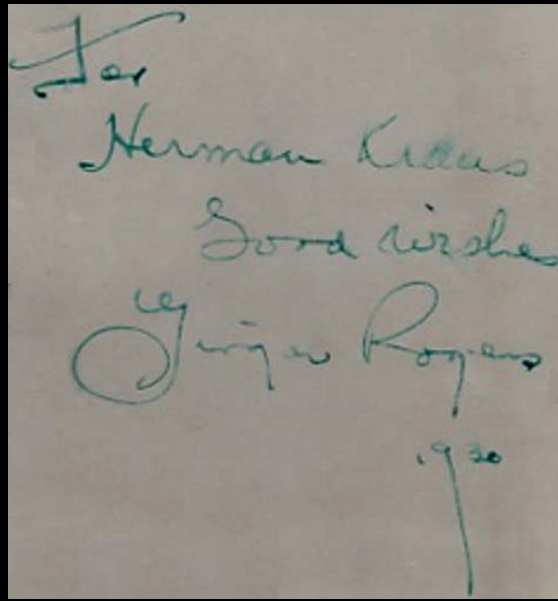 For
Herman Kraus
Good wishes
Ginger Rogers
1930